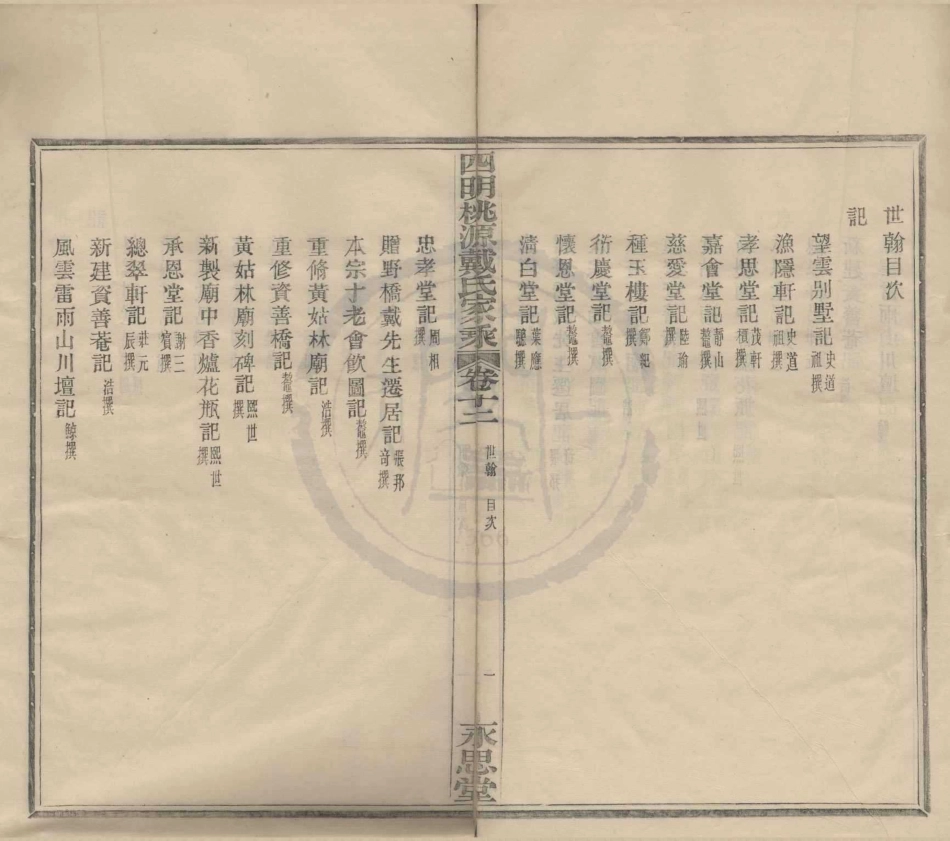 世翰目次
記
望雲别墅記史道祖撰
漁隱軒記史道祖撰
孝思堂記茂軒槓撰
嘉會堂記靜山鼇撰
慈愛堂記陸瑜撰
種玉樓記鄭紀撰
衍慶堂記鼇撰
懷恩堂記鼇撰
清白堂記葉應驄撰
四明桃源戴氏家乘 卷十二 世翰 目次 一 永思堂
忠孝堂記周相撰
贈野橋戴先生遷居記張邦奇撰
本宗十老會飲圖記鼇撰
重修黃姑林廟記浩撰
重修資善橋記鼇撰
黃姑林廟刻碑記熙世撰
新製廟中香爐花瓶記熙世撰
承恩堂記謝三賓撰
總翠軒記莊元辰撰
新建資善菴記浩撰
風雲雷雨山川壇記鯨撰